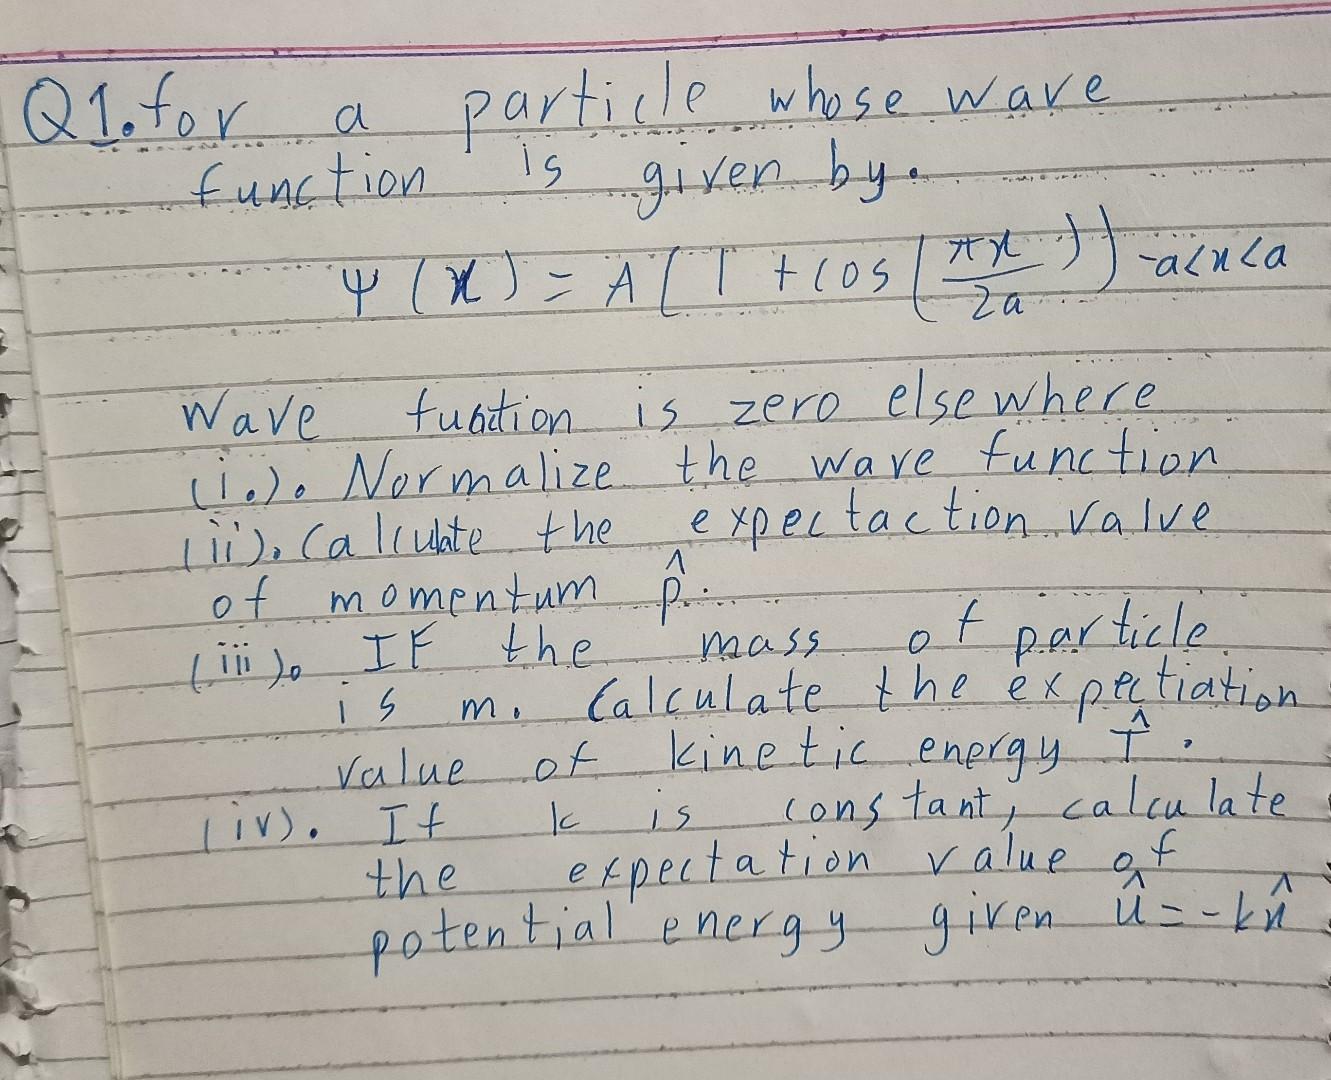 Q1. for a particle whose wave
function is given by.
Ψ(x) = A[1 + cos(πx/2a)] -a<x<a
Wave function is zero elsewhere
(i.). Normalize the wave function
(ii). Calculate the expectaction value
of momentum p̂.
(iii). IF the mass of particle
is m. Calculate the expectiation
value of kinetic energy T̂.
(iv). If k is constant, calculate
the expectation value of
potential energy given û = -kx̂